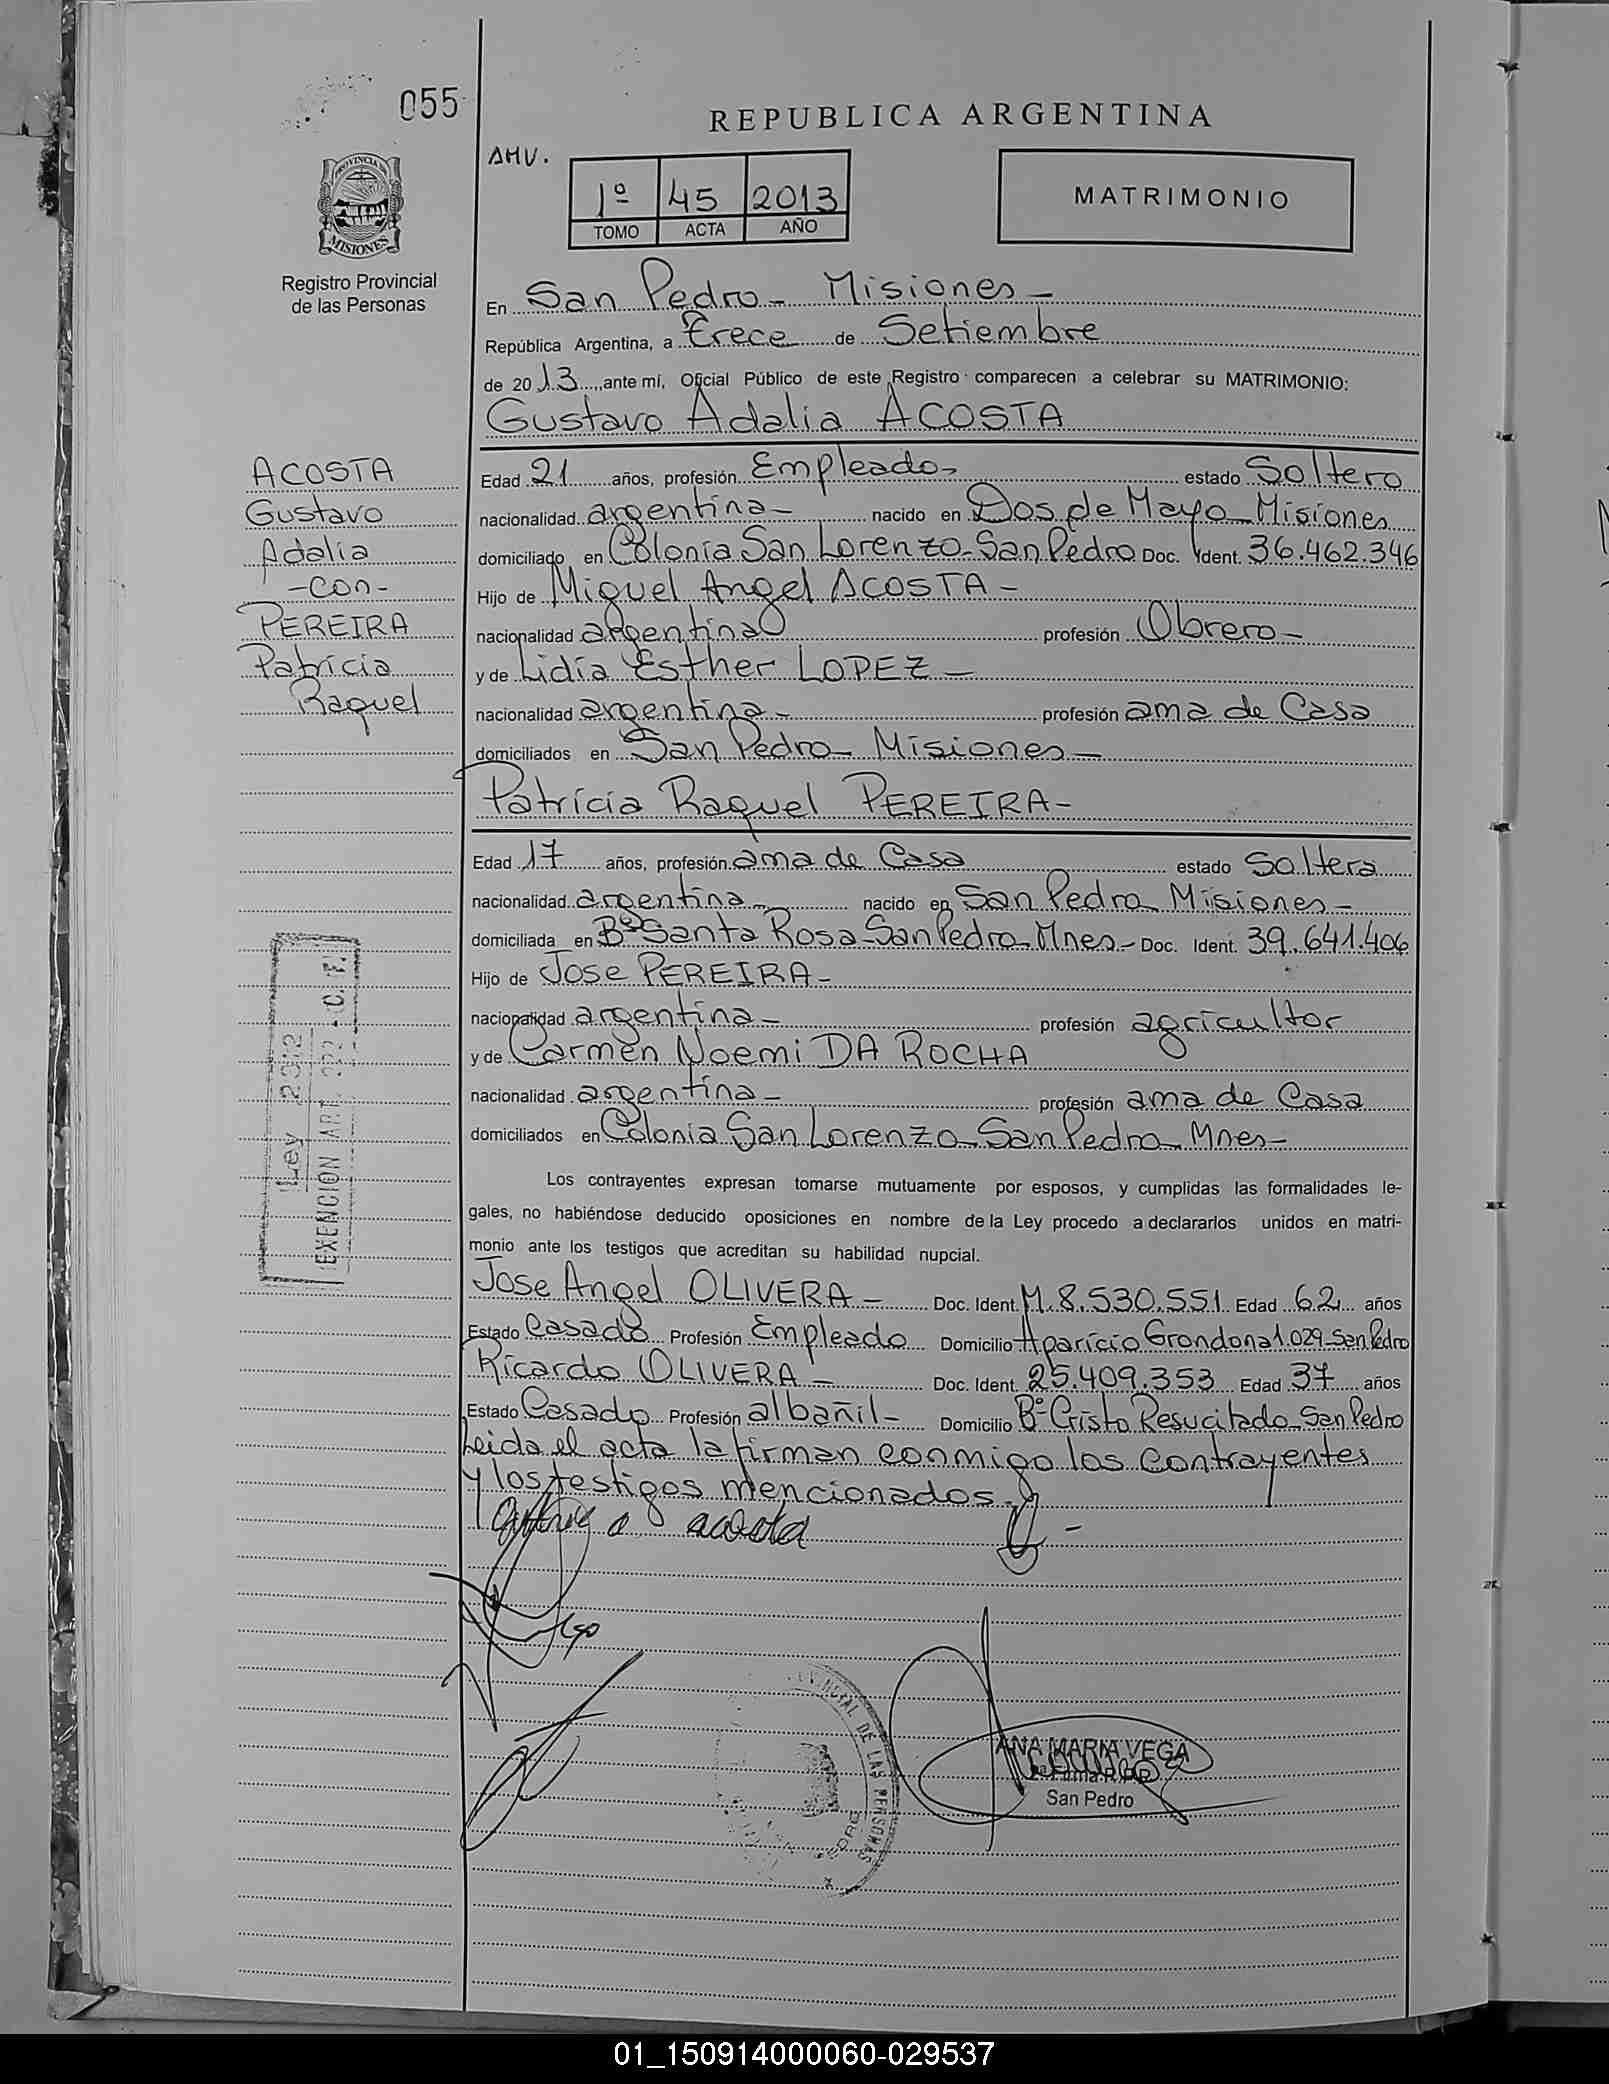 055
REPUBLICA ARGENTINA
AMV.
1º 45 2013
TOMO ACTA AÑO
MATRIMONIO
PROVINCIA DE
MISIONES
Registro Provincial
de las Personas
En San Pedro - Misiones -
República Argentina, a Trece de Setiembre
de 2013, ante mí, Oficial Público de este Registro comparecen a celebrar su MATRIMONIO:
Gustavo Adalia ACOSTA
ACOSTA
Gustavo
Adalia
-con-
PEREIRA
Patricia
Raquel
Edad 21 años, profesión Empleado- estado Soltero
nacionalidad argentina- nacido en Dos de Mayo-Misiones
domiciliado en Colonia San Lorenzo-San Pedro Doc. Ident. 36.462.346
Hijo de Miguel Angel ACOSTA -
nacionalidad argentina profesión Obrero-
y de Lidia Esther LOPEZ -
nacionalidad argentina- profesión ama de Casa
domiciliados en San Pedro- Misiones-
Patricia Raquel PEREIRA-
Edad 17 años, profesión ama de Casa estado Soltera
nacionalidad argentina- nacido en San Pedro-Misiones-
domiciliada en Bº Santa Rosa-San Pedro-Mnes- Doc. Ident. 39.641.406
Hijo de Jose PEREIRA-
nacionalidad argentina- profesión agricultor
y de Carmen Noemi DA ROCHA
nacionalidad argentina- profesión ama de Casa
domiciliados en Colonia San Lorenzo-San Pedro-Mnes-
Ley 2312
EXENCION ART. 222 - C. F.
Los contrayentes expresan tomarse mutuamente por esposos, y cumplidas las formalidades le-
gales, no habiéndose deducido oposiciones en nombre de la Ley procedo a declararlos unidos en matri-
monio ante los testigos que acreditan su habilidad nupcial.
Jose Angel OLIVERA - Doc. Ident. M.8.530.551 Edad 62 años
Estado Casado Profesión Empleado Domicilio Aparicio Grondona 1.029-San Pedro
Ricardo OLIVERA - Doc. Ident. 25.409.353 Edad 37 años
Estado Casado Profesión albañil- Domicilio Bº Cristo Resucitado-San Pedro
Leida el acta la firman conmigo los Contrayentes
y los testigos mencionados.
acosta
DE LAS PERSONAS
ANA MARIA VEGA
San Pedro
01_150914000060-029537